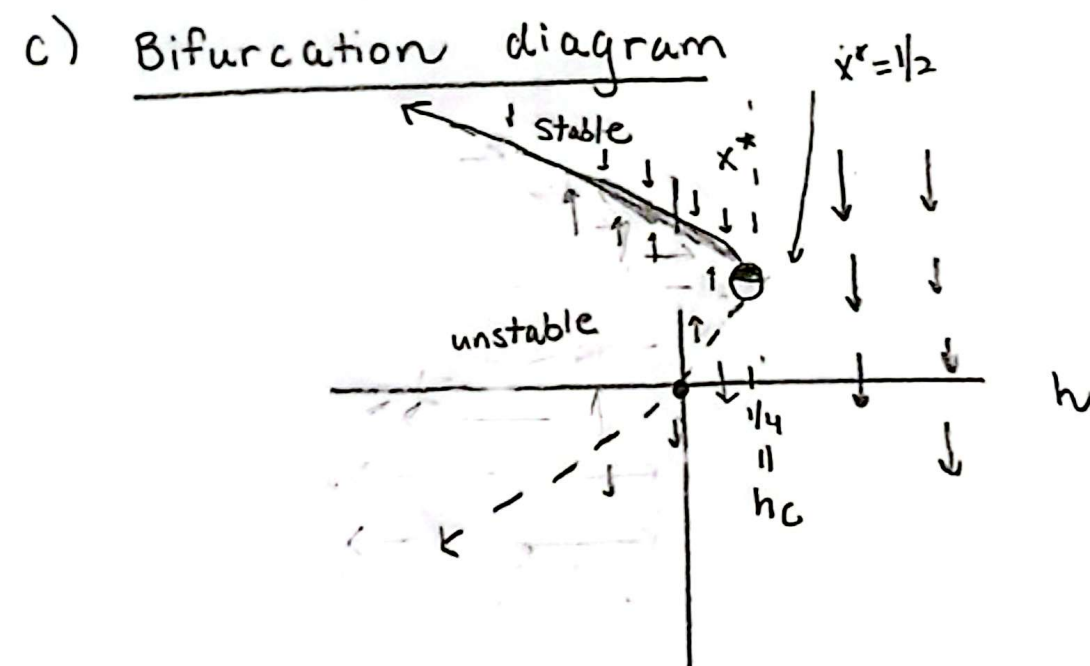 c) Bifurcation diagram
ẋ* = 1/2
stable
x*
unstable
h
1/4
||
hc